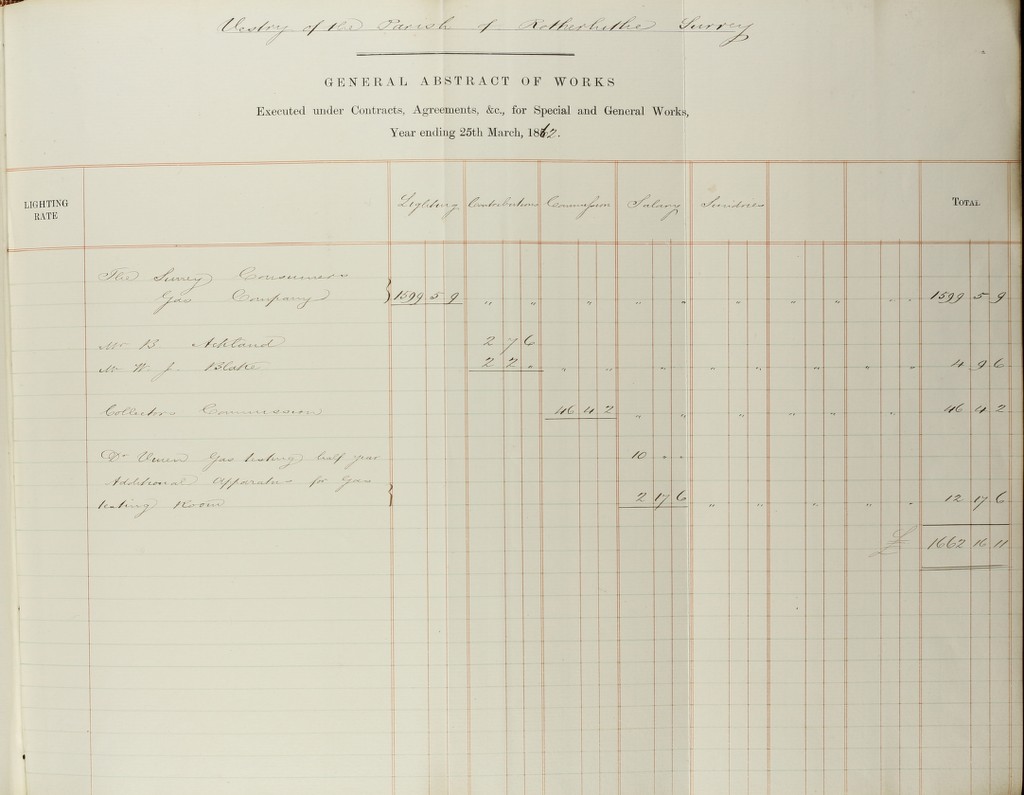 Vestry of the Parish of Rotherhithe Surrey
GENERAL ABSTRACT OF WORKS
Executed under Contracts, Agreements, &c., for Special and General Works,
Year ending 25th March, 1862.
LIGHTING RATE Lighting Contributions Commission Salary Sundries TOTAL
The Surrey Consumers
Gas Company } 1599 5 9 " " " " " " " " " " 1599 5 9
Mr B Ackland 2 7 6
Mr W. J. Blake 2 2 " " " " " " " " " 4 9 6
Collectors Commission 46 4 2 " " " " " 46 4 2
Dr Gas testing half year 10 " "
Additional Apparatus for Gas
testing Room } 2 17 6 " " " " " 12 17 6
£ 1662 16 11